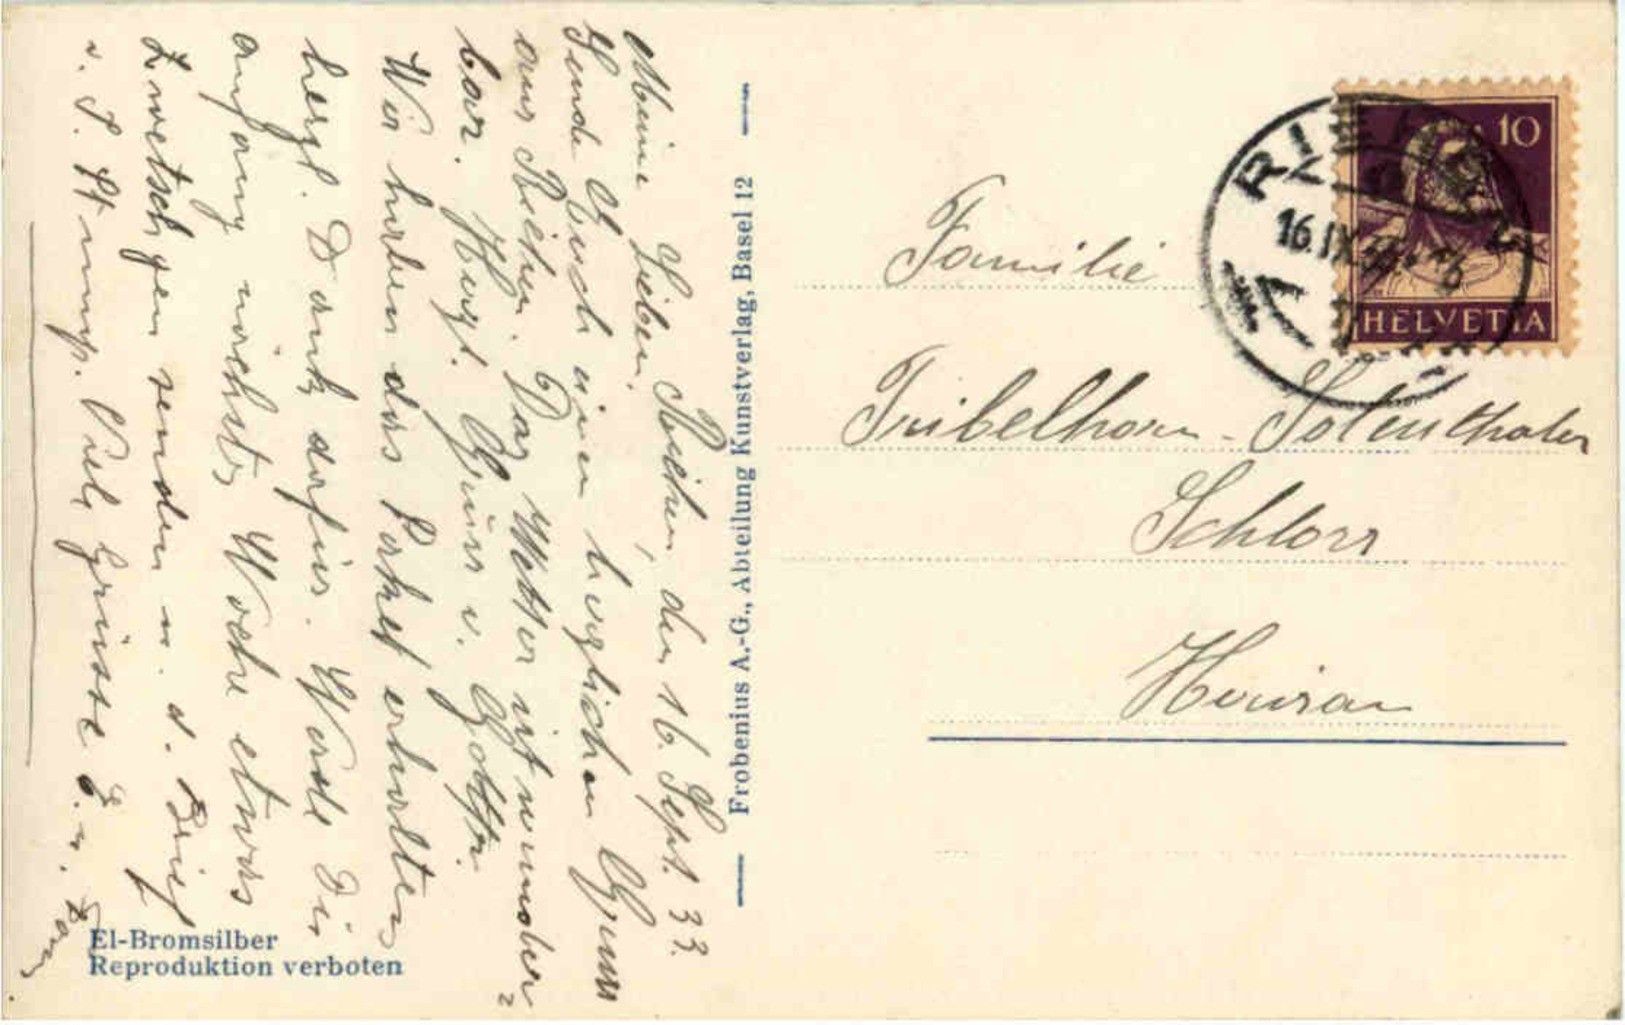 Riehen, den 16. Sept. 33.
Meine Lieben.
Sende Euch einen herzlichen Gruss
aus Riehen. Das Wetter ist wunder
bar. Herzl. Grüsse v.
Wir haben das Packet erhalten
herzl. Dank dafür. Werde Dir
anfang nächste Woche etwas
Zwetschgen senden u. d. Brief
v. Viele Grüsse
Frobenius A.-G., Abteilung Kunstverlag, Basel 12
El-Bromsilber
Reproduktion verboten
10
HELVETIA
RIEHEN
16.IX.33
Familie
Tribelhorn-Solenthaler
Schloss
Herisau